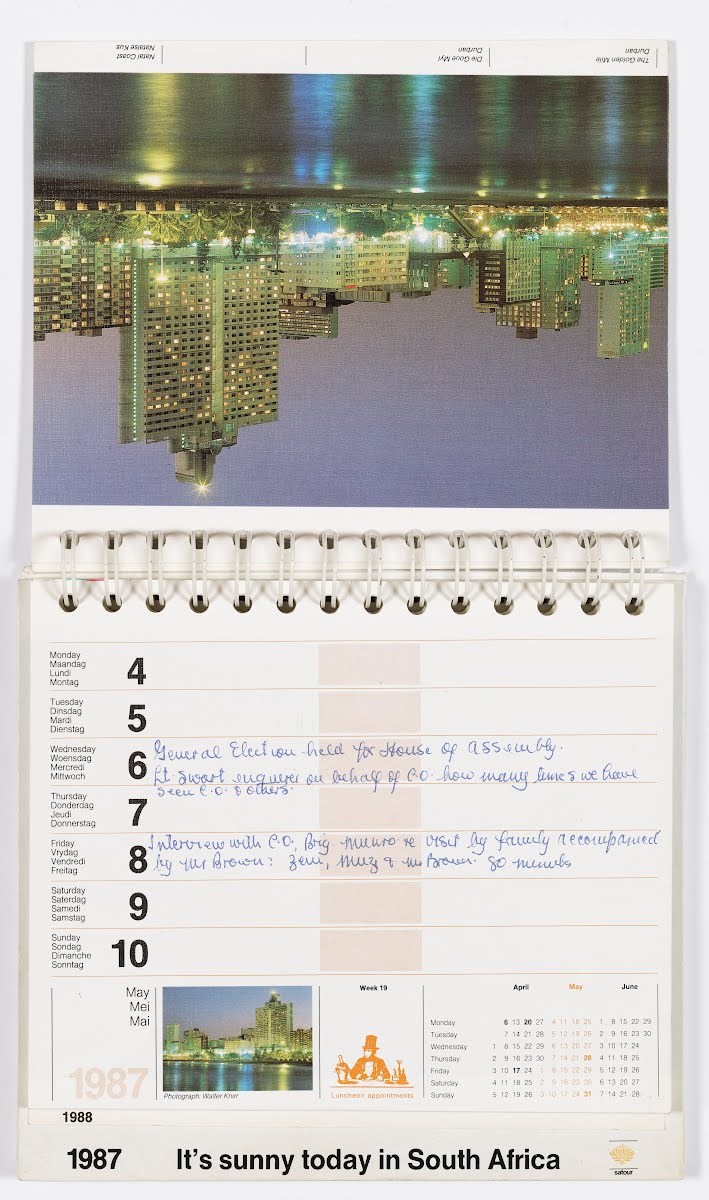 Natal Coast
Natalse Kus
Durban
Die Goue Myl
The Golden Mile
Durban
Monday
Maandag
Lundi
Montag
4
Tuesday
Dinsdag
Mardi
Dienstag
5
Wednesday
Woensdag
Mercredi
Mittwoch
6
General Election held for House of Assembly.
Lt Swart enquires on behalf of C.O. how many times we have
seen C.O. & others.
Thursday
Donderdag
Jeudi
Donnerstag
7
Friday
Vrydag
Vendredi
Freitag
8
Interview with C.O, Brig. Munro re visit by family accompanied
by Mr Brown: Zeni, & Mr Brown 80 minutes
Saturday
Saterdag
Samedi
Samstag
9
Sunday
Sondag
Dimanche
Sonntag
10
May
Mei
Mai
1987
Photograph: Walter Knirr
Week 19
Luncheon appointments
April May June
Monday 6 13 20 27 4 11 18 25 1 8 15 22 29
Tuesday 7 14 21 28 5 12 19 26 2 9 16 23 30
Wednesday 1 8 15 22 29 6 13 20 27 3 10 17 24
Thursday 2 9 16 23 30 7 14 21 28 4 11 18 25
Friday 3 10 17 24 1 8 15 22 29 5 12 19 26
Saturday 4 11 18 25 2 9 16 23 30 6 13 20 27
Sunday 5 12 19 26 3 10 17 24 31 7 14 21 28
1988
1987 It's sunny today in South Africa
satour